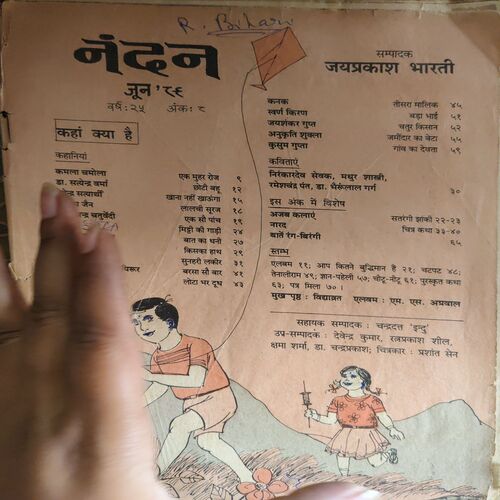 R. Bihari
नंदन
जून '८९
वर्ष: २५ अंक: ८
सम्पादक
जयप्रकाश भारती
कहां क्या है
कहानियां
कमला चमोला एक मुहर रोज ९
डा. सत्येन्द्र वर्मा छोटी बहू १२
सत्यार्थी खाना नहीं खाऊंगा १५
जैन लालची सूरज १८
चतुर्वेदी एक सौ पांच १९
मिट्टी की गाड़ी २४
बात का धनी २७
किसका हाथ २९
सुनहरी लकीर ३१
बरसा सौ बार ४१
लोटा भर दूध ४३
कनक तीसरा मालिक ४५
स्वर्ण किरण बड़ा भाई ५१
जयशंकर गुप्त चतुर किसान ५२
अनुकृति शुक्ला जमींदार का बेटा ५५
कुसुम गुप्ता गांव का देवता ५९
कविताएं
निरंकारदेव सेवक, मधुर शास्त्री,
रमेशचंद्र पंत, डा. भैरूंलाल गर्ग ३०
इस अंक में विशेष
अजब कलाएं सतरंगी झांकी २२-२३
नारद चित्र कथा ३३-४०
बातें रंग-बिरंगी ६५
स्तम्भ
एलबम ११; आप कितने बुद्धिमान है २१; चटपट ४८;
तेनालीराम ४९; ज्ञान-पहेली ५७; चीटू-नीटू ६१; पुरस्कृत कथा
६३; पत्र मिला ७०।
मुख-पृष्ठ : विद्याव्रत एलबम: एम. एस. अग्रवाल
सहायक सम्पादक : चन्द्रदत्त 'इन्दु'
उप-सम्पादक : देवेन्द्र कुमार, रत्नप्रकाश शील,
क्षमा शर्मा, डा. चन्द्रप्रकाश; चित्रकार : प्रशांत सेन